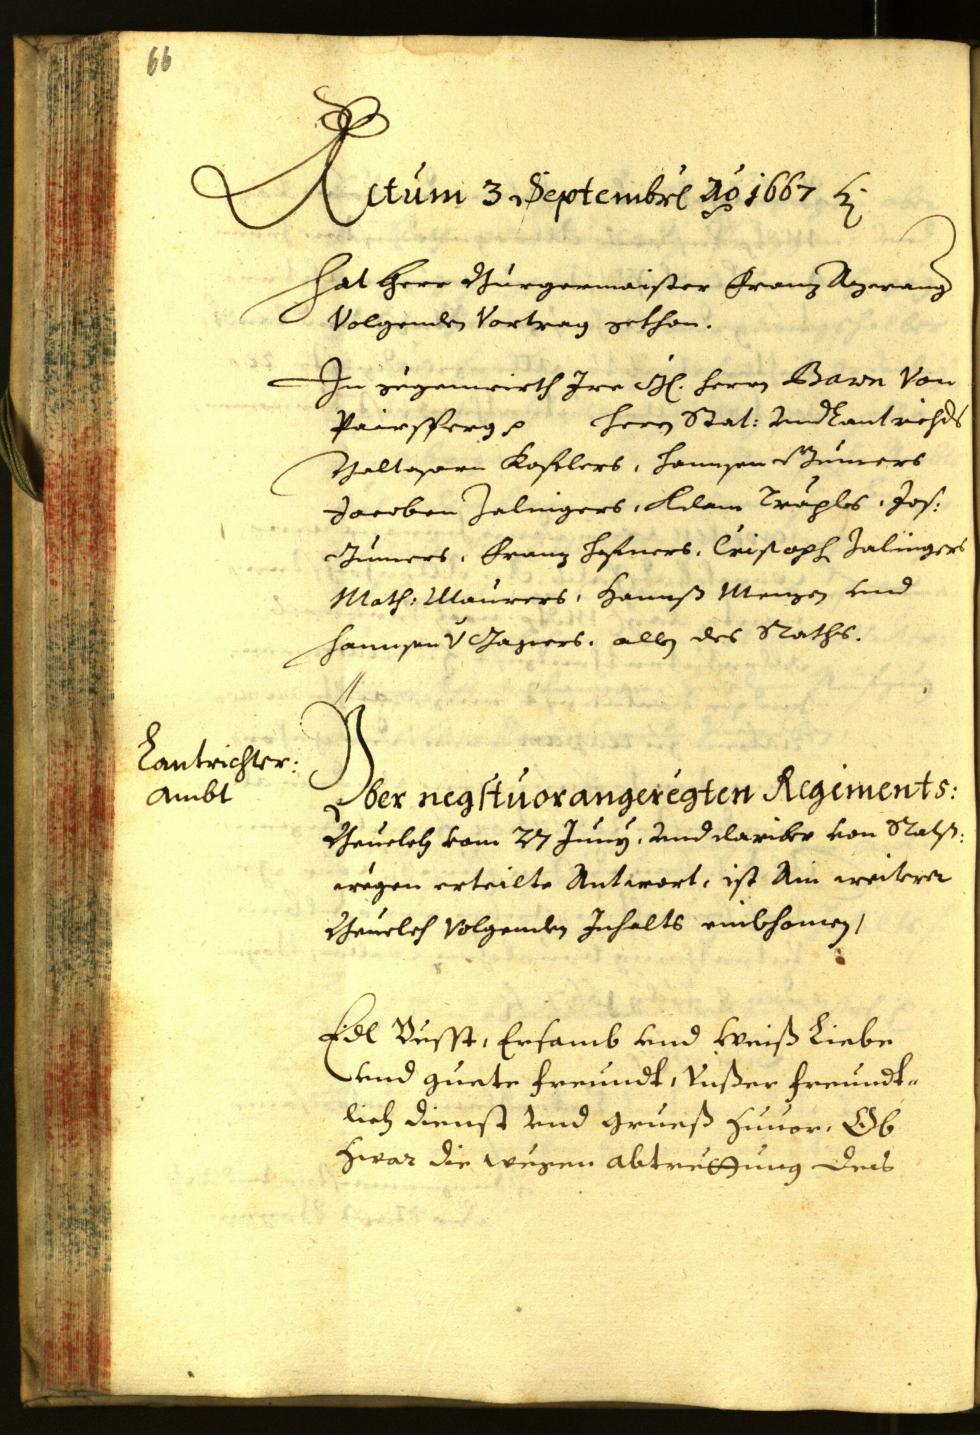 66
Actum 3 Septembris Ao 1667
Hat Herr Burgermaister Franz Agerang
Volgenden Vortrag gethon.
In gegenwirth Ire Hl. Herrn Barn Von
Pairsperg Herrn Stat: und Lantrichters
Balthasarn Kofelers, Hannsen Sumers
Jacoben Zalingers, Adam Träpls, Jos:
Sumers, Franz Hafners, Cristoph Zalingers
Math: Maurers, Hannß Menzen und
Hannsen V aller des Raths.
Lantrichter:
Ambt
Über negst vorangeregten Regiments:
Beuelch vom 27 Juny, und dariber von Rats:
wegen erteilte Antwort, ist Ain weiterer
Beuelch Volgenden Inhalts einkhomen,
Edl Vesst, Ersamb und Weiß Liebe
und guete freundt, Unßer freundt-
lich dienst und grueß Zuuor. Ob
Zwar die wegen abtrettung des